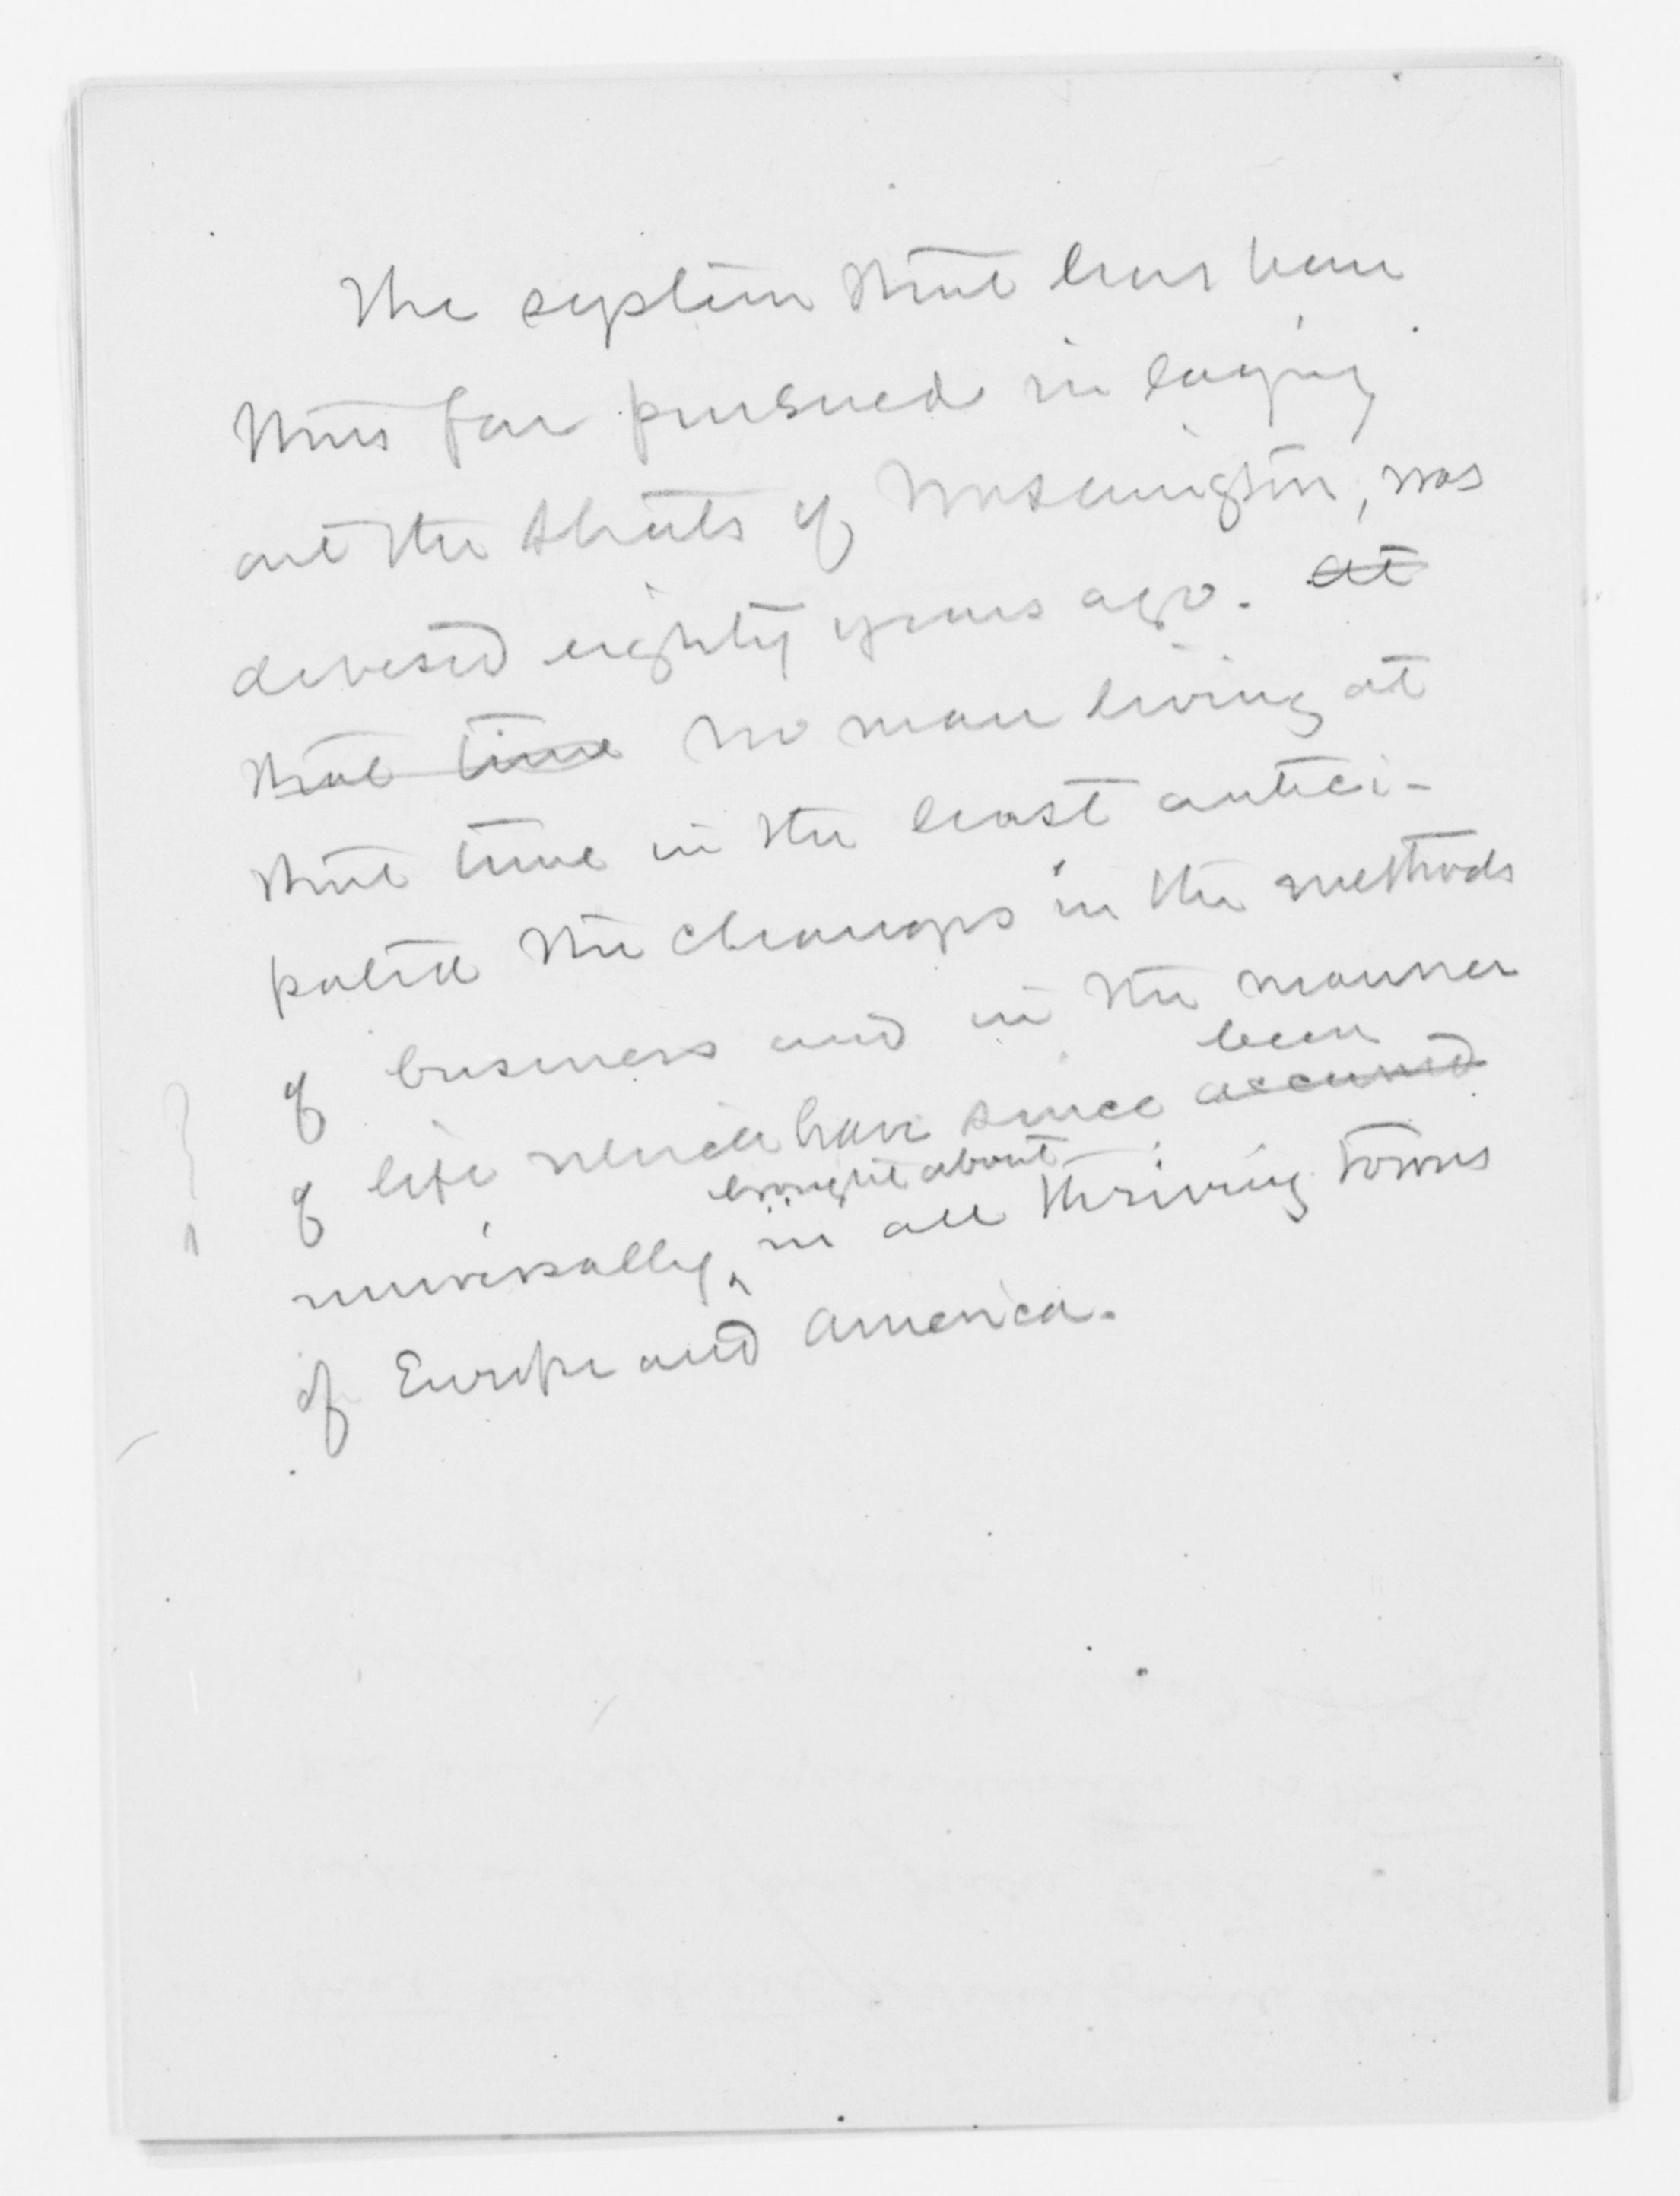 The system that has been
thus far pursued in laying
out the streets of Washington, was
devised eighty years ago. at
that time no man living at
that time in the least antici-
pated the changes in the methods
of business and in the manner
been
of life which have since occurred
brought about
universally in all thriving towns
of Europe and America.